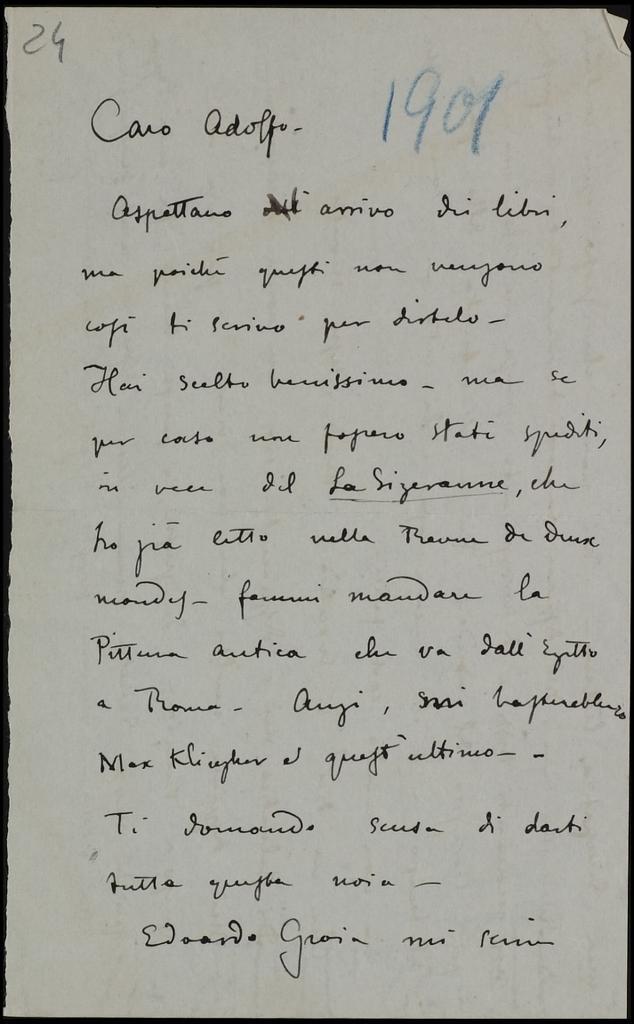 24
1901
Caro Adolfo -
Aspettavo arrivo dei libri,
ma poichè questi non vengono
così ti scrivo per dirtelo -
Hai scelto benissimo - ma se
per caso non fossero stati spediti,
in vece del La Sizeranne, che
ho già letto nella Revue de deux
mondes - fammi mandare la
Pittura antica che va dall'Egitto
a Roma - Anzi, mi basterebbero
Max Klingher e quest'ultimo - -
Ti domando scusa di darti
tutta questa noia -
Edoardo Gioia mi scrive